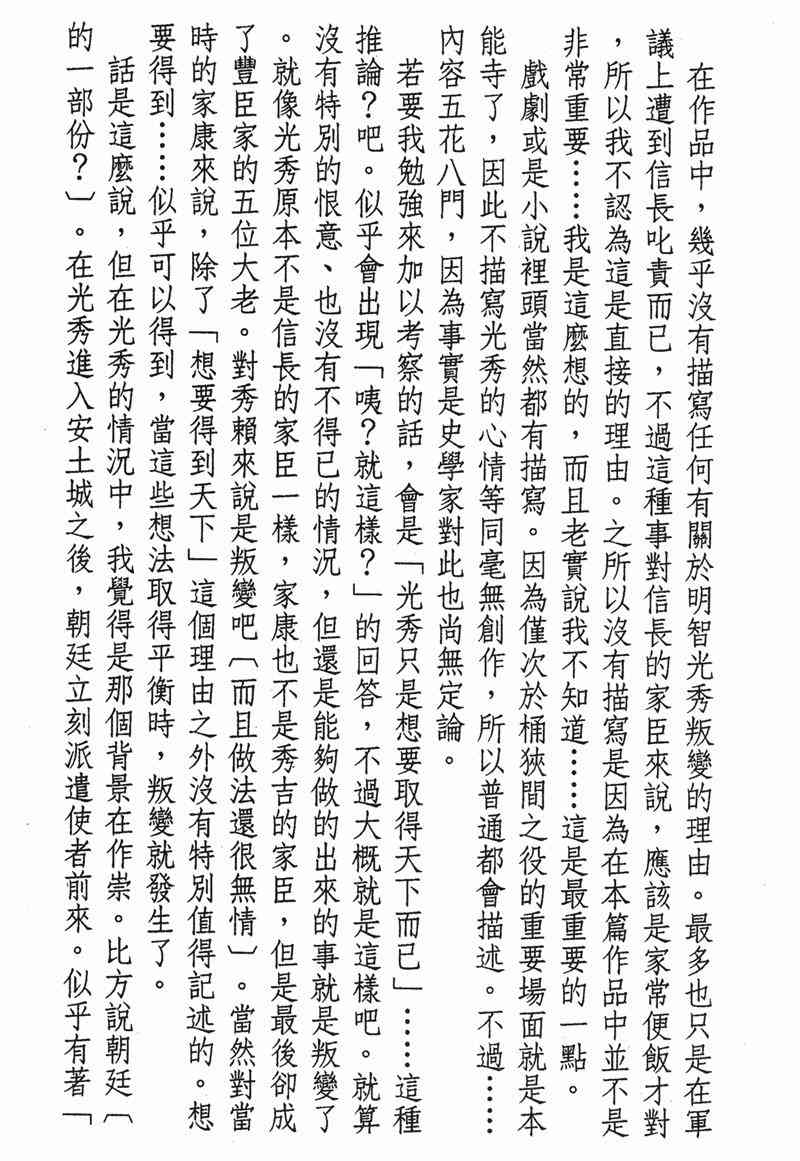 在作品中，幾乎沒有描寫任何有關於明智光秀叛變的理由。最多也只是在軍
議上遭到信長叱責而已，不過這種事對信長的家臣來說，應該是家常便飯才對
，所以我不認為這是直接的理由。之所以沒有描寫是因為在本篇作品中並不是
非常重要……我是這麼想的，而且老實說我不知道……這是最重要的一點。
戲劇或是小說裡頭當然都有描寫。因為僅次於桶狹間之役的重要場面就是本
能寺了，因此不描寫光秀的心情等同毫無創作，所以普通都會描述。不過……
內容五花八門，因為事實是史學家對此也尚無定論。
若要我勉強來加以考察的話，會是「光秀只是想要取得天下而已」……這種
推論？吧。似乎會出現「咦？就這樣？」的回答，不過大概就是這樣吧。就算
沒有特別的恨意、也沒有不得已的情況，但還是能夠做的出來的事就是叛變了
。就像光秀原本不是信長的家臣一樣，家康也不是秀吉的家臣，但是最後卻成
了豐臣家的五位大老。對秀賴來說是叛變吧〔而且做法還很無情〕。當然對當
時的家康來說，除了「想要得到天下」這個理由之外沒有特別值得記述的。想
要得到……似乎可以得到，當這些想法取得平衡時，叛變就發生了。
話是這麼說，但在光秀的情況中，我覺得是那個背景在作祟。比方說朝廷〔
的一部份？〕。在光秀進入安土城之後，朝廷立刻派遣使者前來。似乎有著「